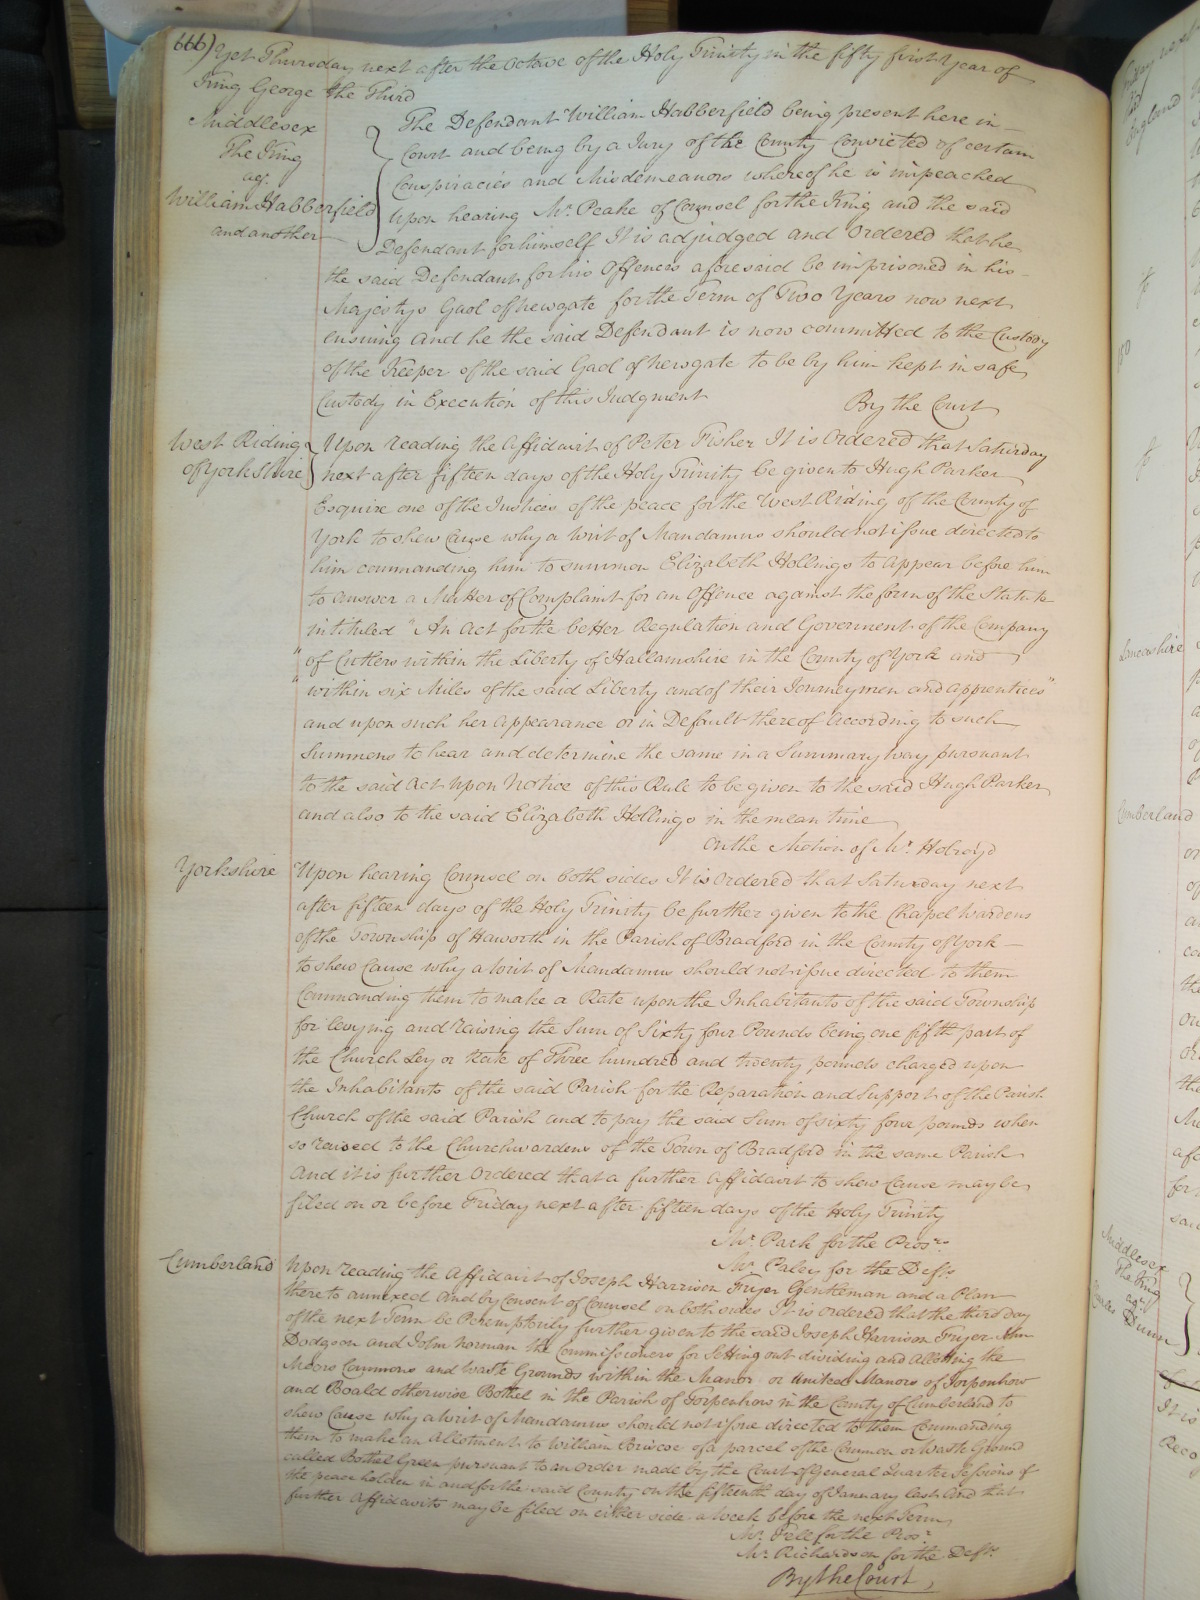 666) Yet Thursday next after the Octave of the Holy Trinity in the fifty first Year of
King George the Third
Middlesex
The King
agt.
William Habberfield
and another
The Defendant William Habberfield being present here in
Court and being by a Jury of the County Convicted of certain
Conspiracies and Misdemeanors whereof he is impeached
Upon hearing Mr. Peake of Counsel for the King and the said
Defendant for himself It is adjudged and Ordered that he
the said Defendant for his Offences aforesaid be imprisoned in his
Majestys Gaol of Newgate for the Term of Two Years now next
ensuing and he the said Defendant is now committed to the Custody
of the Keeper of the said Gaol of Newgate to be by him kept in safe
Custody in Execution of this Judgment
By the Court
West Riding
of Yorkshire
Upon reading the Affidavit of Peter Fisher It is Ordered that Saturday
next after fifteen days of the Holy Trinity be given to Hugh Parker
Esquire one of the Justices of the peace for the West Riding of the County of
York to shew Cause why a Writ of Mandamus should not issue directed to
him commanding him to summon Elizabeth Hollings to appear before him
to answer a Matter of Complaint for an Offence against the form of the Statute
intituled "An Act for the better Regulation and Goverment of the Company
"of Cutlers within the Liberty of Hallamshire in the County of York and
"within six Miles of the said Liberty and of their Journeymen and Apprentices"
and upon such her appearance or in Default thereof according to such
Summons to hear and determine the same in a Summary way pursuant
to the said Act upon Notice of this Rule to be given to the said Hugh Parker
and also to the said Elizabeth Hollings in the mean time
On the Motion of Mr. Holroyd
Yorkshire
Upon hearing Counsel on both sides It is Ordered that Saturday next
after fifteen days of the Holy Trinity be further given to the Chapel Wardens
of the Township of Haworth in the Parish of Bradford in the County of York
to shew Cause why a Writ of Mandamus should not issue directed to them
Commanding them to make a Rate upon the Inhabitants of the said Township
for levying and raising the Sum of Sixty four Pounds being one fifth part of
the Church Ley or Rate of Three hundred and twenty pounds charged upon
the Inhabitants of the said Parish for the Reparation and Support of the Parish
Church of the said Parish and to pay the said Sum of sixty four pounds when
so raised to the Churchwardens of the Town of Bradford in the same Parish
And it is further Ordered that a further Affidavit to shew Cause may be
filed on or before Friday next after fifteen days of the Holy Trinity
Mr. Park for the Prosr.
Mr. Paley for the Defts.
Cumberland
Upon reading the Affidavit of Joseph Harrison Fryer Gentleman and a Plan
thereto annexed and by Consent of Counsel on both sides It is Ordered that the third day
of the next Term be Peremptorily further given to the said Joseph Harrison Fryer John
Dodgson and John Norman the Commissioners for Setting out dividing and Allotting the
Moors Commons and Waste Grounds within the Manor or united Manors of Torpenhow
and Boald otherwise Bothel in the Parish of Torpenhow in the County of Cumberland to
shew Cause why a Writ of Mandamus should not issue directed to them Commanding
them to make an Allotment to William Briscoe of a parcel of the Common or Waste Ground
called Bothel Green pursuant to an Order made by the Court of General Quarter Sessions of
the peace holden in and for the said County on the fifteenth day of January last And that
further Affidavits may be filed on either side a Week before the next Term
Mr. Pell for the Prosr.
Mr. Richardson for the Defts.
By the Court
England
Lancashire
Cumberland
Middlesex
The King
agt.
Charles Dunn
It is
Reco